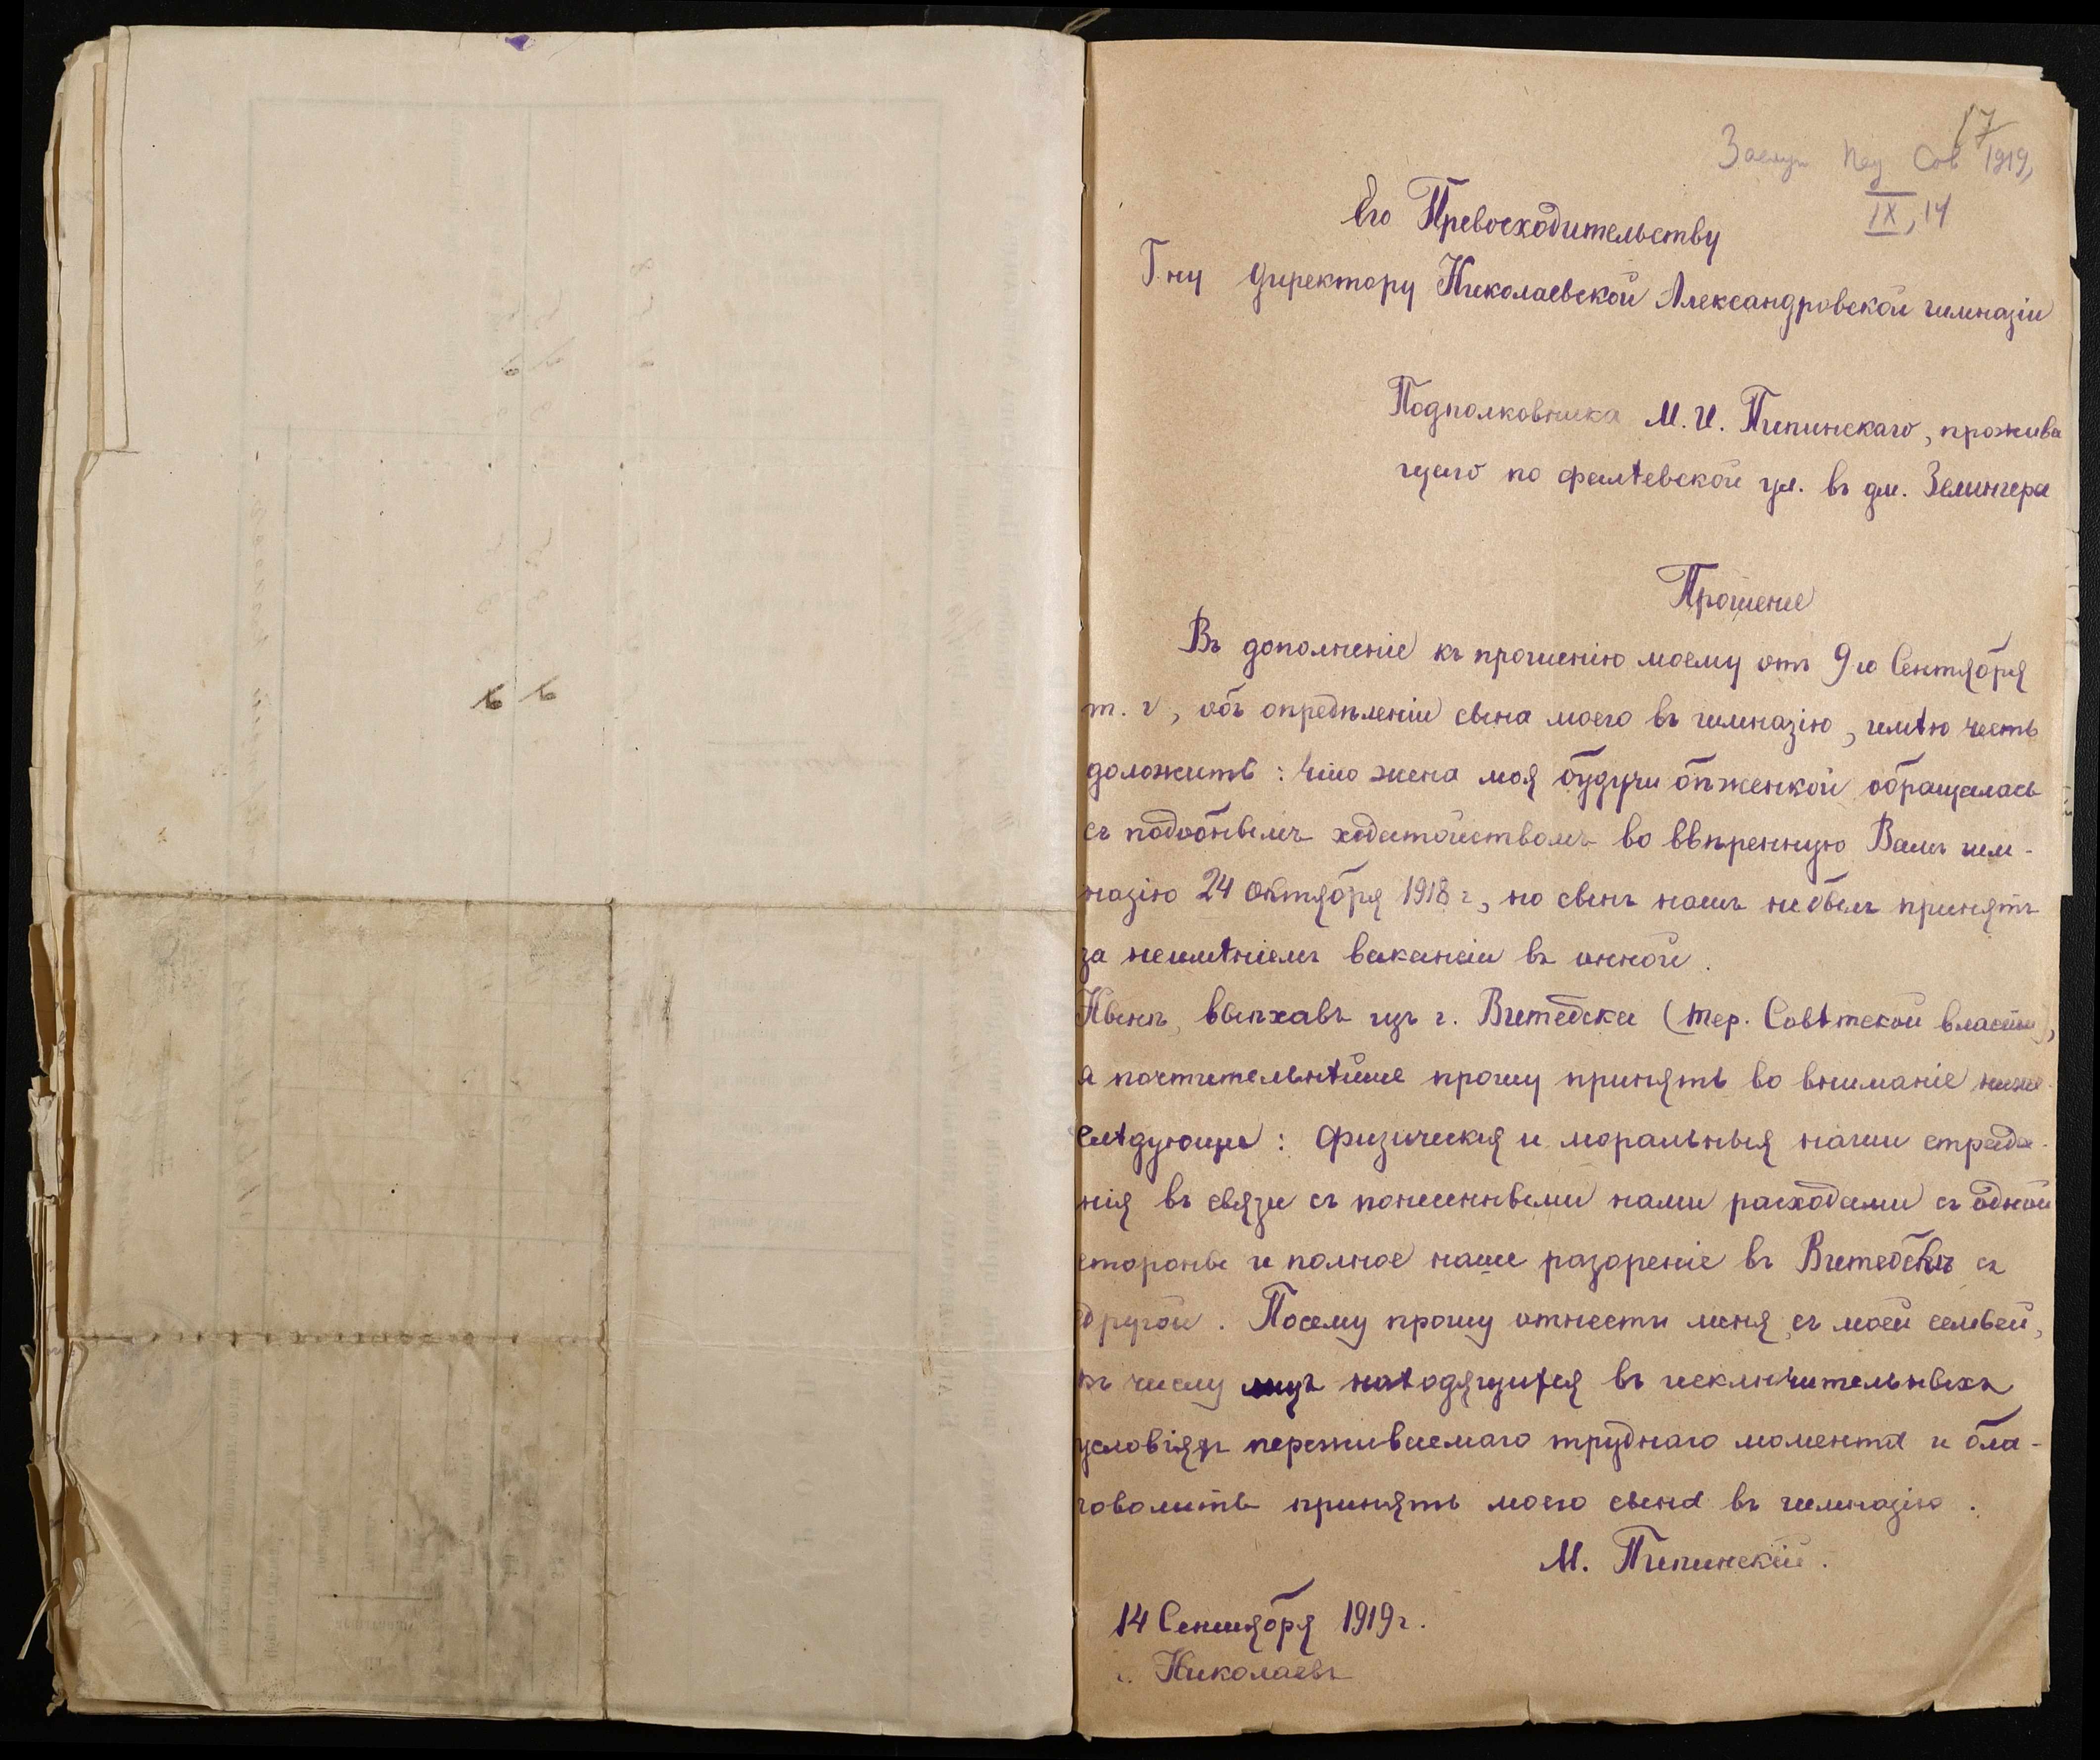 17
Заслуш Пед Сов 1919,
IX, 14
Его Превосходительству
Г.ну Директору Николаевской Александровской гимназіи
Подполковника М. И. Пипинскаго, прожива
ющаго по Фалѣевской ул. въ дм. Зелингера
Прошеніе
Въ дополненіе къ прошенію моему отъ 9го Сентября
т. г, объ опредѣленіи сына моего въ гимназію, имѣю честь
доложить: что жена моя будучи бѣженкой обращалась
съ подобнымъ ходатайствомъ во ввѣренную Вамъ гим-
назію 24 Октября 1918 г, но сынъ нашъ не былъ принятъ
за неимѣніемъ вакансіи въ онной.
Нынѣ, выѣхавъ изъ г. Витебска (тер. Совѣтской власти),
я почтительнѣйше прошу принять во вниманіе ниже-
слѣдующее: физическія и моральныя наши страда-
нія въ связи съ понесенными нами расходами съ одной
стороны и полное наше разореніе въ Витебскѣ съ
другой. Посему прошу отнести меня, съ моей семьей,
къ числу лицъ находящихся въ исключительныхъ
условіяхъ переживаемаго труднаго момента и бла-
говолить принять моего сына въ гимназію.
М. Пипинскій.
14 Сентября 1919 г.
г. Николаевъ